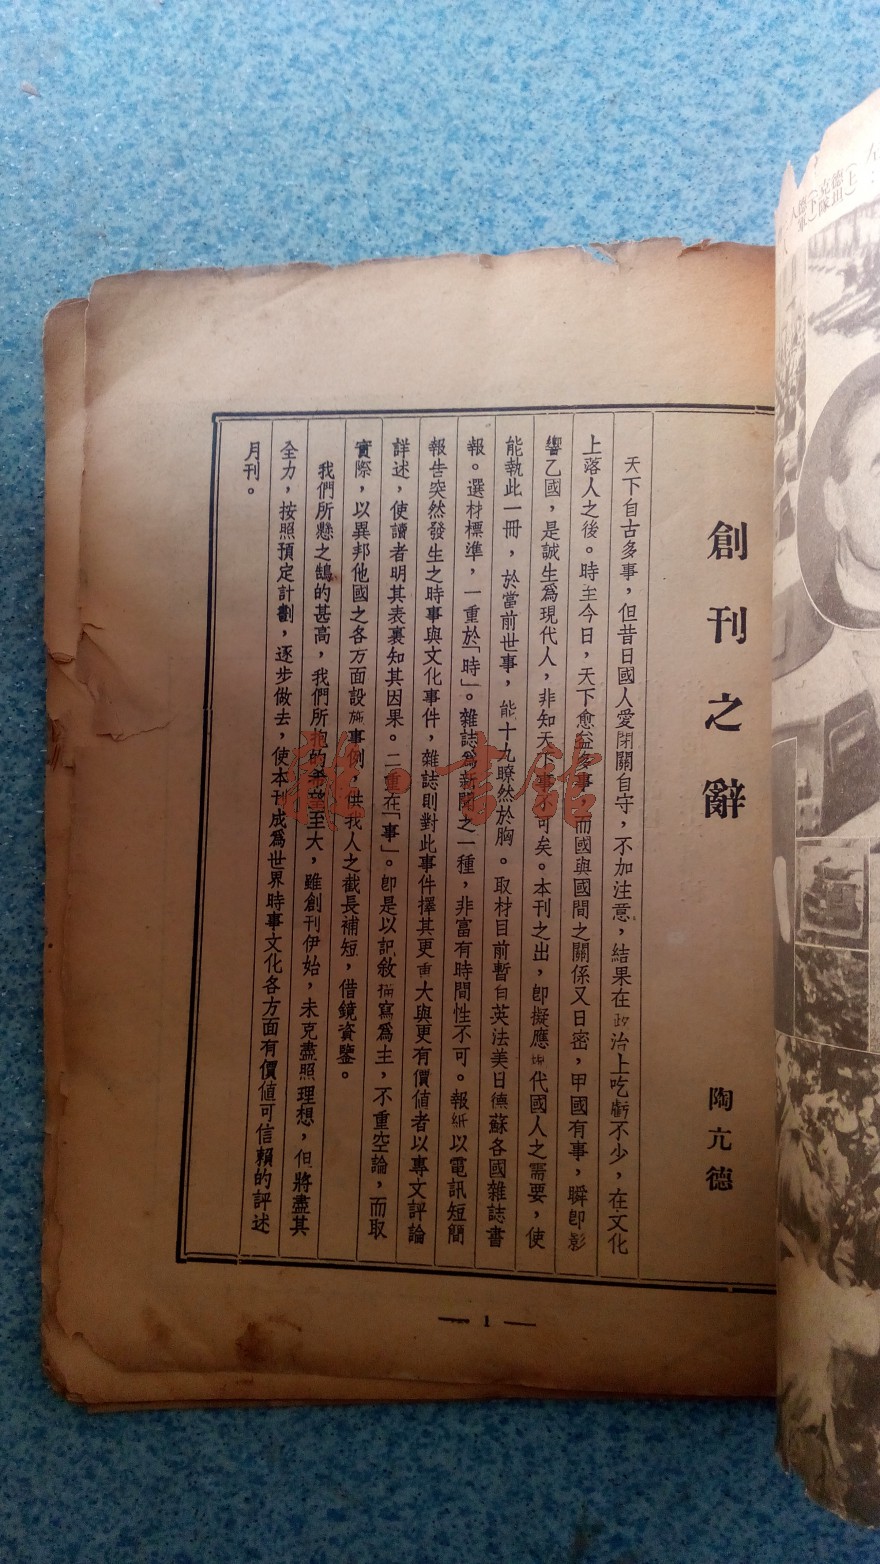 創刊之辭
陶亢德
天下自古多事，但昔日國人愛閉關自守，不加注意，結果在政治上吃虧不少，在文化
上落人之後。時至今日，天下愈益多事，而國與國間之關係又日密，甲國有事，瞬卽影
響乙國，是誠生爲現代人，非知天下事不可矣。本刊之出，卽擬應現代國人之需要，使
能執此一冊，於當前世事，能十九瞭然於胸。取材目前暫自英法美日德蘇各國雜誌書
報。選材標準，一重於「時」。雜誌爲新聞之一種，非富有時間性不可。報紙以電訊短簡
報告突然發生之時事與文化事件，雜誌則對此事件擇其更重大與更有價値者以專文評論
詳述，使讀者明其表裏知其因果。二重在「事」。卽是以記敘描寫爲主，不重空論，而取
實際，以異邦他國之各方面設施事例，供我人之截長補短，借鏡資鑒。
我們所懸之鵠的甚高，我們所抱的希望至大，雖創刊伊始，未克盡照理想，但將盡其
全力，按照預定計劃，逐步做去，使本刊成爲世界時事文化各方面有價値可信賴的評述
月刊。
— 1 —
雜·書館